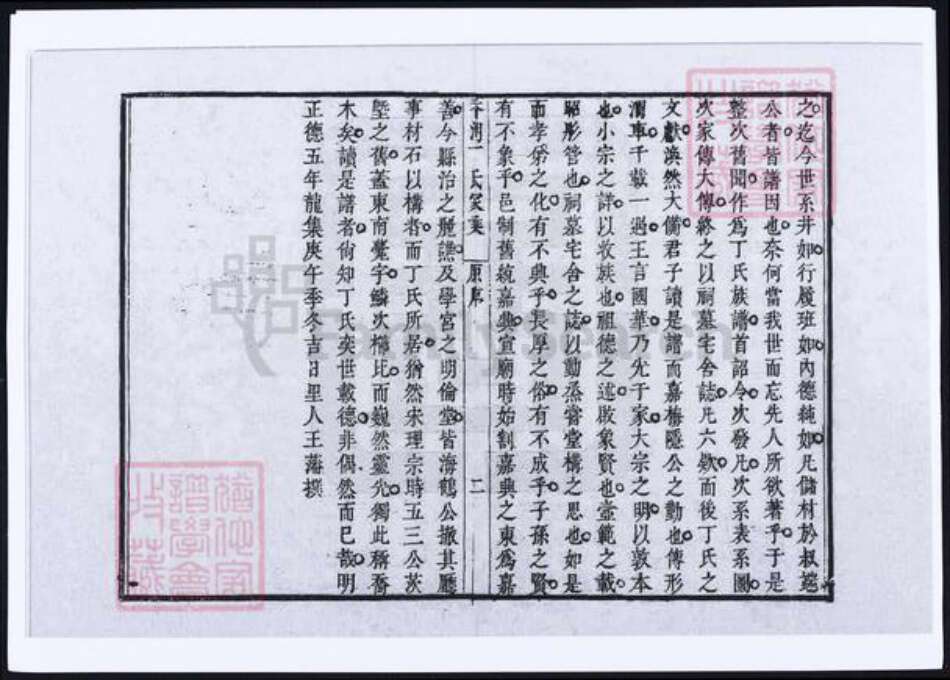 之迄今世系井如行履班如內德純如凡儲材於叔遠
公者皆譜因也奈何當我世而忘先人所欲著乎于是
整次舊聞作爲丁氏族譜首詔令次發凡次系表系圖
次家傳大傳終之以祠墓宅舍誌凡六欵而後丁氏之
文獻渙然大備君子讀是譜而嘉梅隱公之勳也傳形
渭車千載一遇王言國華乃先于家大宗之明以敦本
也小宗之詳以收族也祖德之述啟象賢也壼範之載
昭彤管也祠墓宅舍之誌以勤烝嘗堂構之思也如是
而孝弟之化有不興乎長厚之俗有不成乎子孫之賢
有不象乎邑制舊統嘉興宣廟時始割嘉興之東爲嘉
平湖丁氏家乘 原序 二
善今縣治之麗譙及學宮之明倫堂皆海鶴公撤其廳
事材石以構者而丁氏所居猶然宋理宗時五三公茨
墍之舊蓋東南甍宇鱗次櫛比而巍然靈光獨此稱喬
木矣讀是譜者尙知丁氏奕世載德非偶然而已哉明
正德五年龍集庚午季冬吉日里人王 撰
FamilySearch